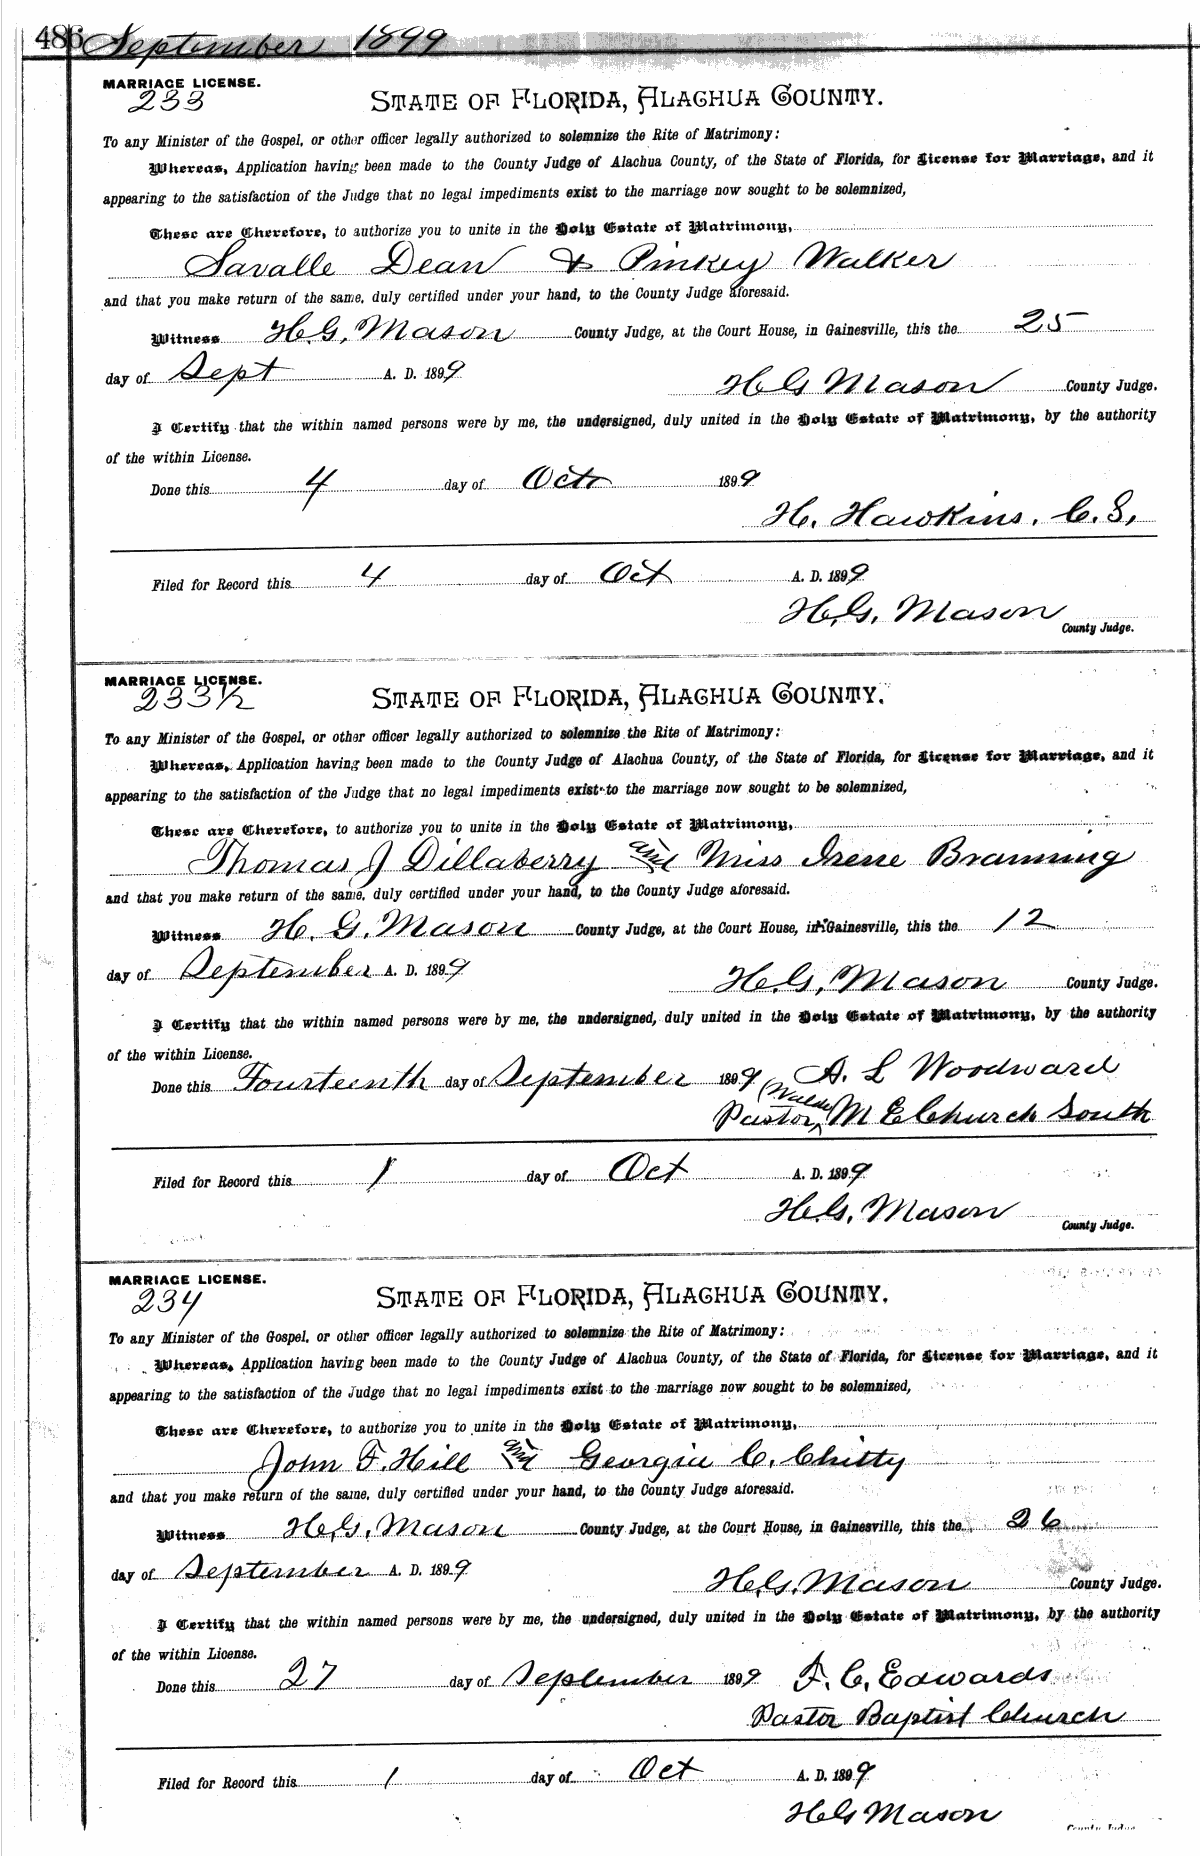 486 September 1899
MARRIAGE LICENSE.
233
STATE OF FLORIDA, ALACHUA COUNTY.
To any Minister of the Gospel, or other officer legally authorized to solemnize the Rite of Matrimony:
Whereas, Application having been made to the County Judge of Alachua County, of the State of Florida, for License for Marriage, and it
appearing to the satisfaction of the Judge that no legal impediments exist to the marriage now sought to be solemnized,
These are Therefore, to authorize you to unite in the Holy Estate of Matrimony,
Savalle Dean & Pinkey Walker
and that you make return of the same, duly certified under your hand, to the County Judge aforesaid.
Witness H.G. Mason County Judge, at the Court House, in Gainesville, this the 25
day of Sept A. D. 1899
H G Mason County Judge.
I Certify that the within named persons were by me, the undersigned, duly united in the Holy Estate of Matrimony, by the authority
of the within License.
Done this 4 day of Octr 1899
H. Hawkins. C. S,
Filed for Record this 4 day of Oct A. D. 1899
H.G. Mason
County Judge.
MARRIAGE LICENSE.
233½
STATE OF FLORIDA, ALACHUA COUNTY.
To any Minister of the Gospel, or other officer legally authorized to solemnize the Rite of Matrimony:
Whereas, Application having been made to the County Judge of Alachua County, of the State of Florida, for License for Marriage, and it
appearing to the satisfaction of the Judge that no legal impediments exist to the marriage now sought to be solemnized,
These are Therefore, to authorize you to unite in the Holy Estate of Matrimony,
Thomas J Dillaberry and Miss Irene Branning
and that you make return of the same, duly certified under your hand, to the County Judge aforesaid.
Witness H. G. Mason County Judge, at the Court House, in Gainesville, this the 12
day of September A. D. 1899
H.G. Mason County Judge.
I Certify that the within named persons were by me, the undersigned, duly united in the Holy Estate of Matrimony, by the authority
of the within License.
Done this Fourteenth day of September 1899 A. L Woodward
Pastor, M E Church South
Filed for Record this 1 day of Oct A. D. 1899
H.G. Mason
County Judge.
MARRIAGE LICENSE.
234
STATE OF FLORIDA, ALACHUA COUNTY.
To any Minister of the Gospel, or other officer legally authorized to solemnize the Rite of Matrimony:
Whereas, Application having been made to the County Judge of Alachua County, of the State of Florida, for License for Marriage, and it
appearing to the satisfaction of the Judge that no legal impediments exist to the marriage now sought to be solemnized,
These are Therefore, to authorize you to unite in the Holy Estate of Matrimony,
John F. Hill and Georgia C. Chitty
and that you make return of the same, duly certified under your hand, to the County Judge aforesaid.
Witness H.G. Mason County Judge, at the Court House, in Gainesville, this the 26
day of September A. D. 1899
H.G. Mason County Judge.
I Certify that the within named persons were by me, the undersigned, duly united in the Holy Estate of Matrimony, by the authority
of the within License.
Done this 27 day of September 1899 F. C. Edwards
Pastor Baptist Church
Filed for Record this 1 day of Oct A. D. 1899
H G Mason
County Judge